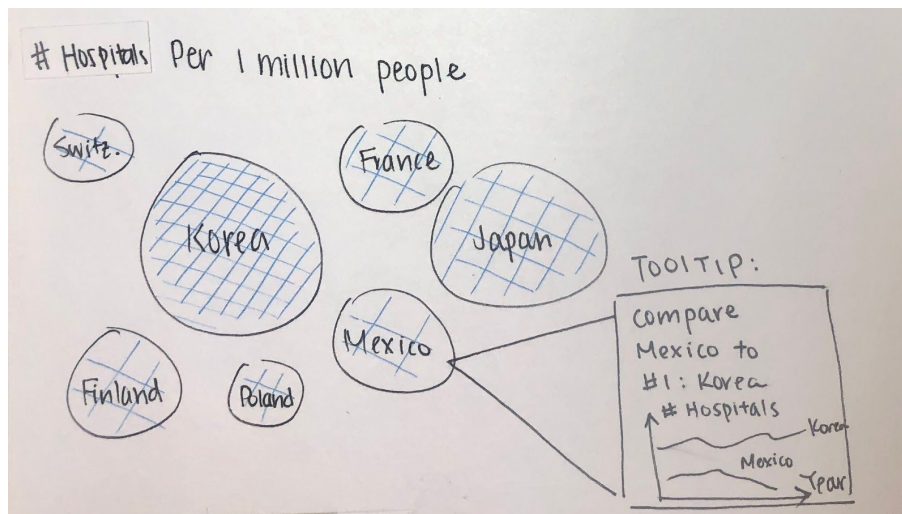 # Hospitals Per 1 million people
Switz.
France
Korea
Japan
TOOLTIP:
Mexico
Finland
Poland
compare
Mexico to
#1: Korea
# Hospitals
Korea
Mexico
Year